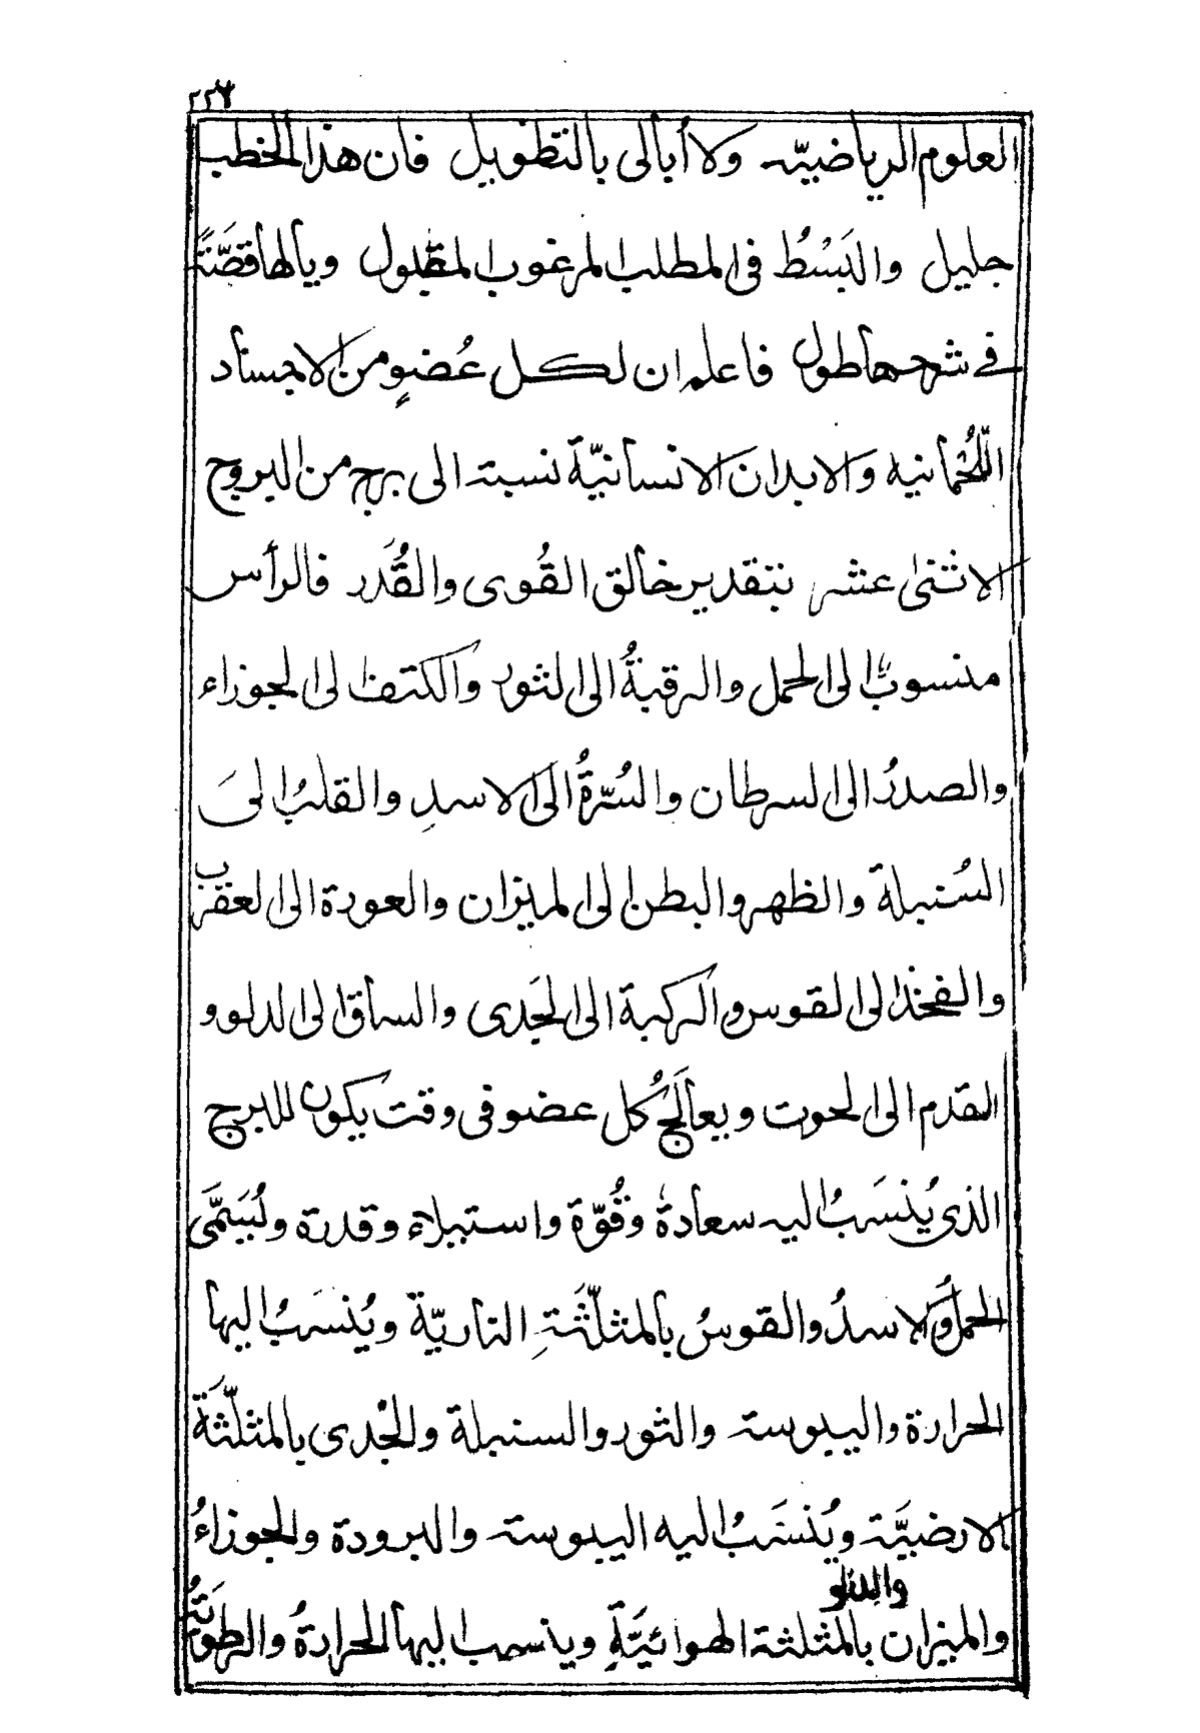 ٢٢٧
العلوم الرياضيّة ولا أبالى بالتطويل فان هذا الخطب
جليل والبَسْطُ فى المطلب المرغوب المقبول ويالها قصّةً
في شرحها طول فاعلم ان لكل عُضوٍ من الاجساد
اللُّحمانيه والابدان الانسانيّة نسبة الى برج من البروج
الاثنى عشر بتقدير خالق القُوى والقُدَر فالرأس
منسوبٌ الى الحمل والرقبةُ الى الثور والكتف الى الجوزاء
والصدرُ الى السرطان والسُرّةُ الى الاسدِ والقلبُ الىَ
السُنبلة والظهر والبطن الى الميزان والعورة الى العقرب
والفخذ الى القوس والركبة الى الجَدى والساق الى الدلو و
القدم الى الحوت ويعالَجُ كُل عضو فى وقت يكون للبرج
الذى يُنسَبُ اليه سعادةٌ وقُوّة واستيلاء وقدرة ويُسَمَّى
الحملُ والاسدُ والقوسُ بالمثلّثَةِ الناريّة ويُنسَبُ اليها
الحرارة واليبوسة والثور والسنبلة والجْدى بالمثلّثَة
الارضيَّة ويُنسَبُ اليه اليبوسة والبرودة والجوزاءُ
والدلو
والميزان بالمثلثة الهوائيَّةِ وينسب اليها الحرارةُ والرطوبَةُ